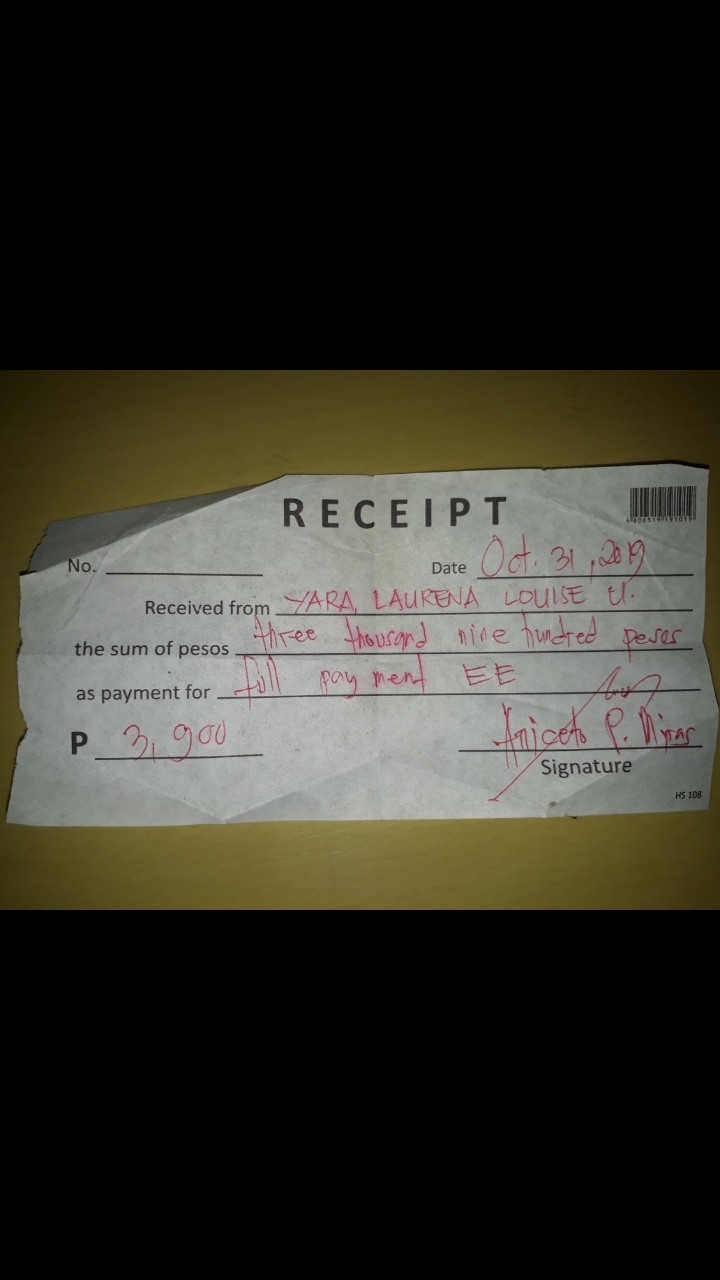 RECEIPT
No.
Date Oct. 31, 2019
Received from YARA, LAURENA LOUISE U.
the sum of pesos three thousand nine hundred pesos
as payment for full payment EE
P 3,900
Aniceto P.
Signature
HS 108